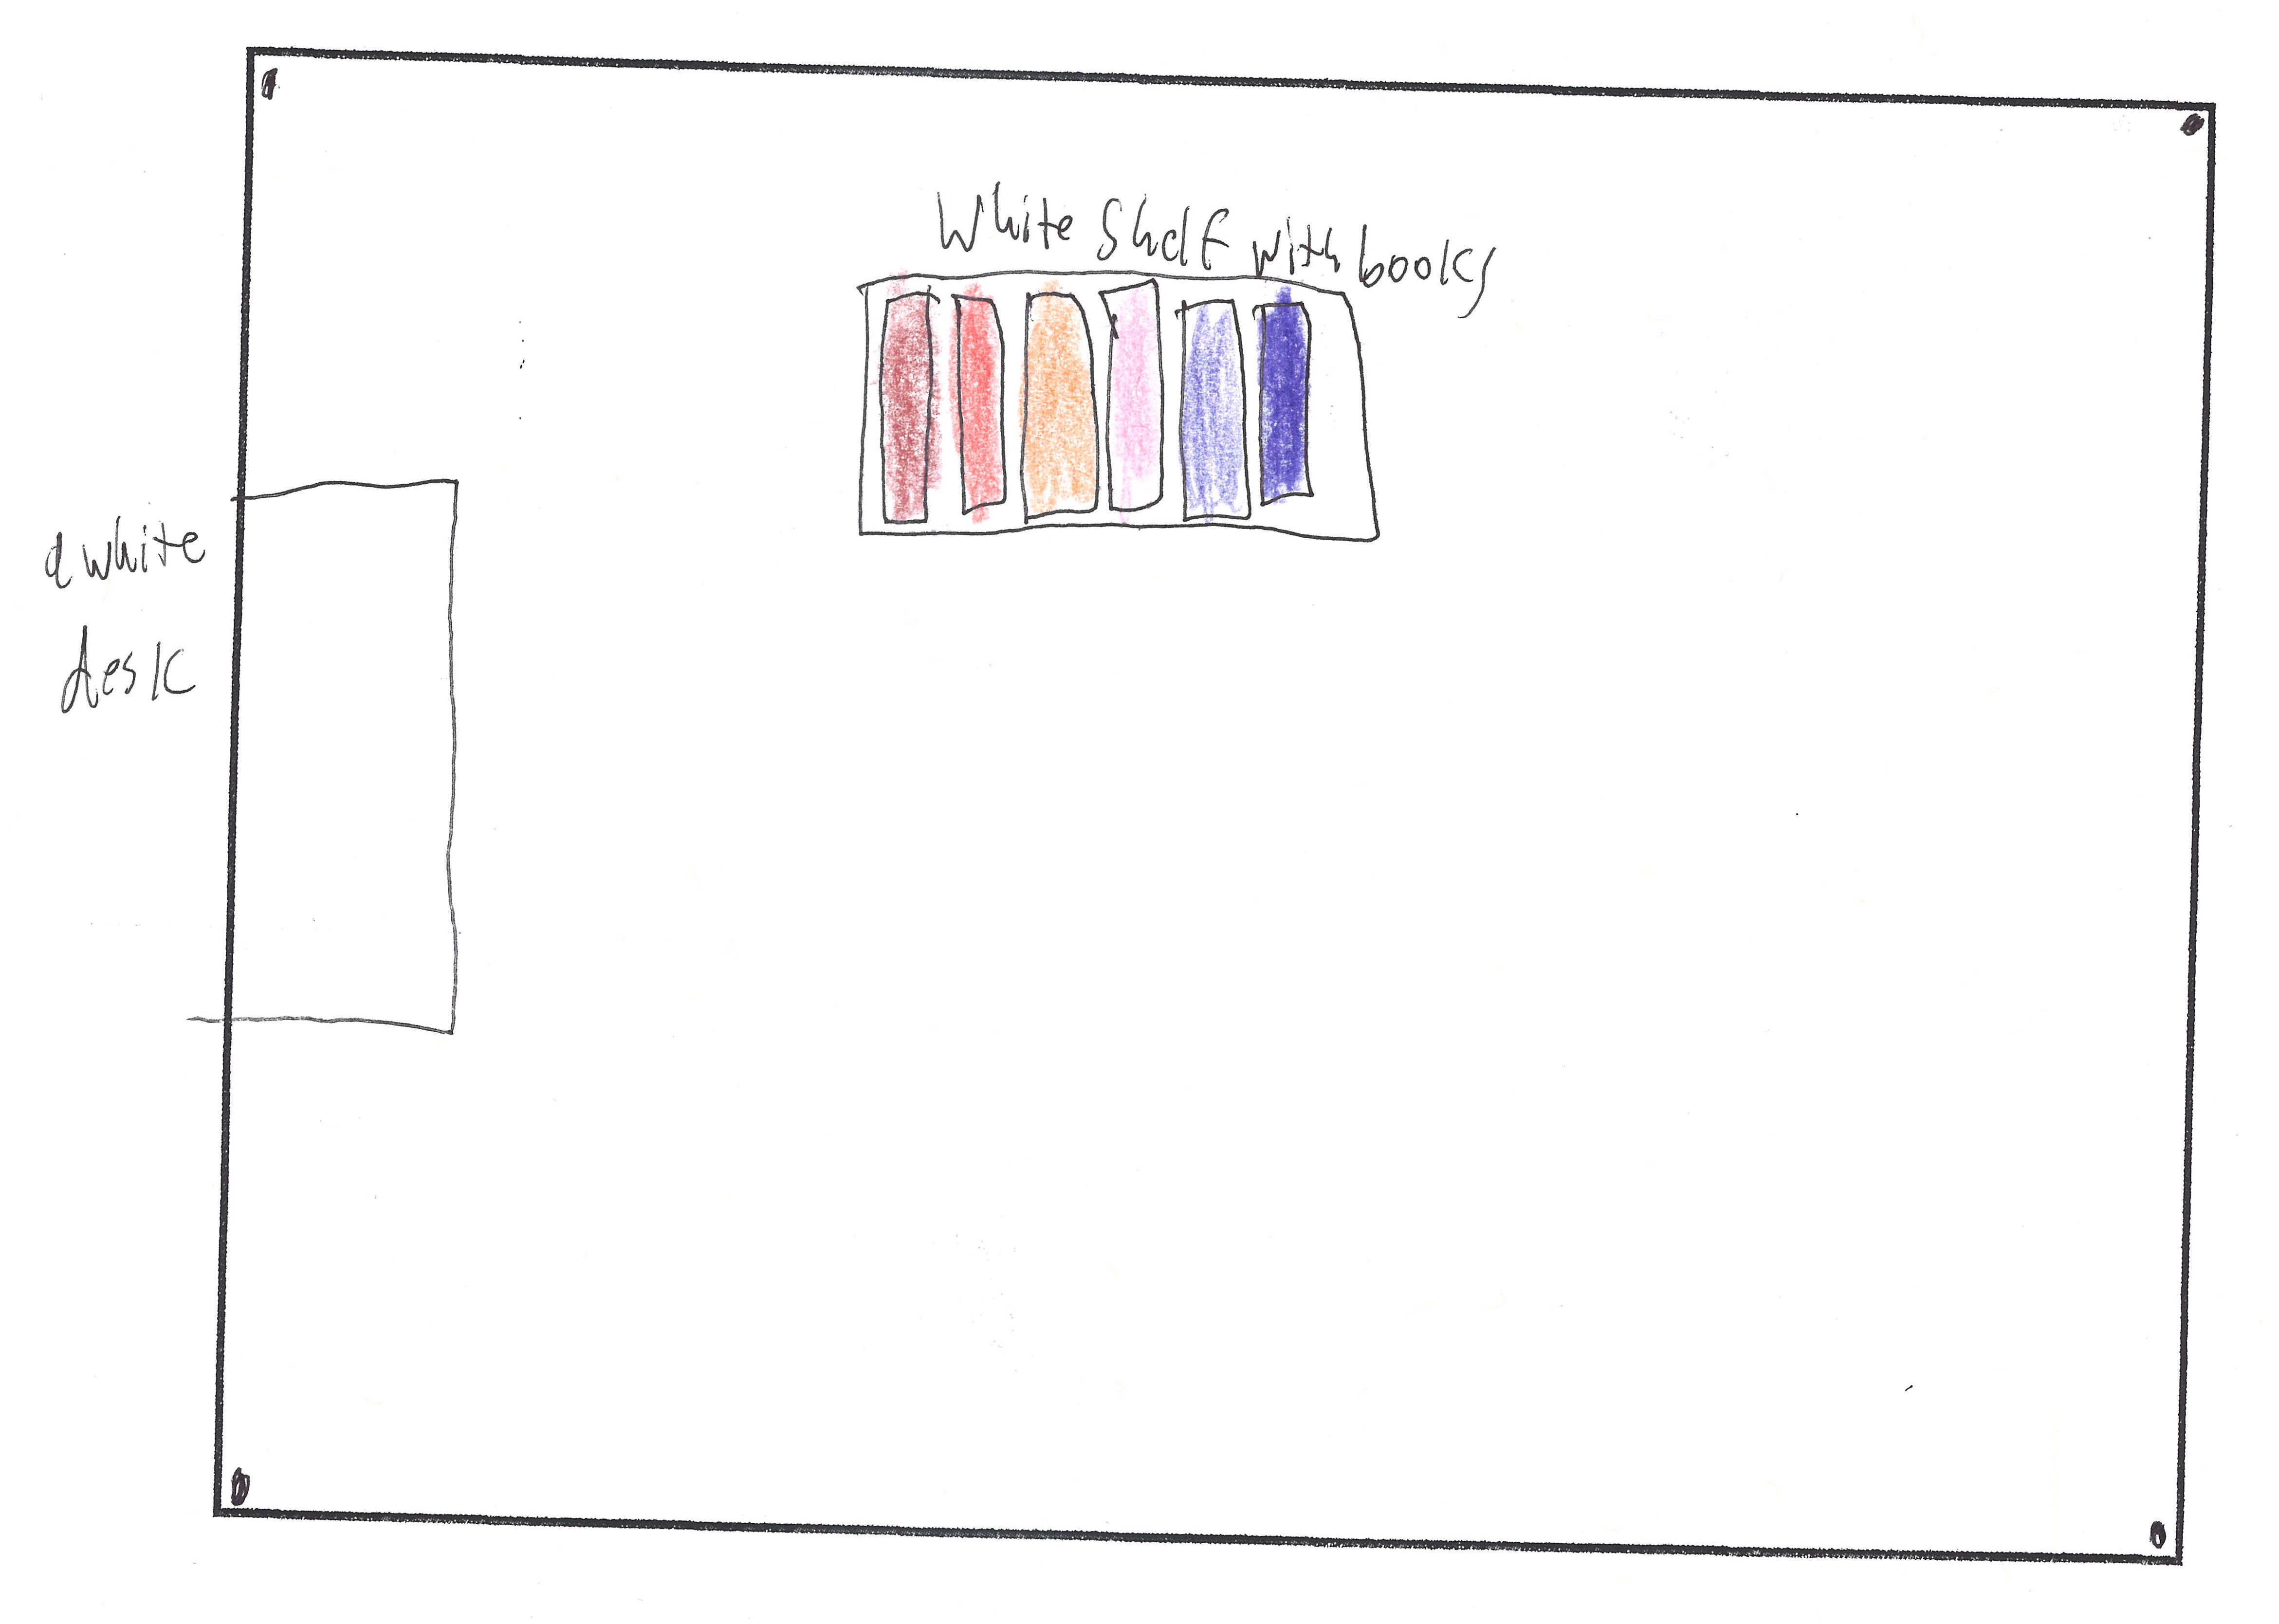 White Shelf with books
a white
desk